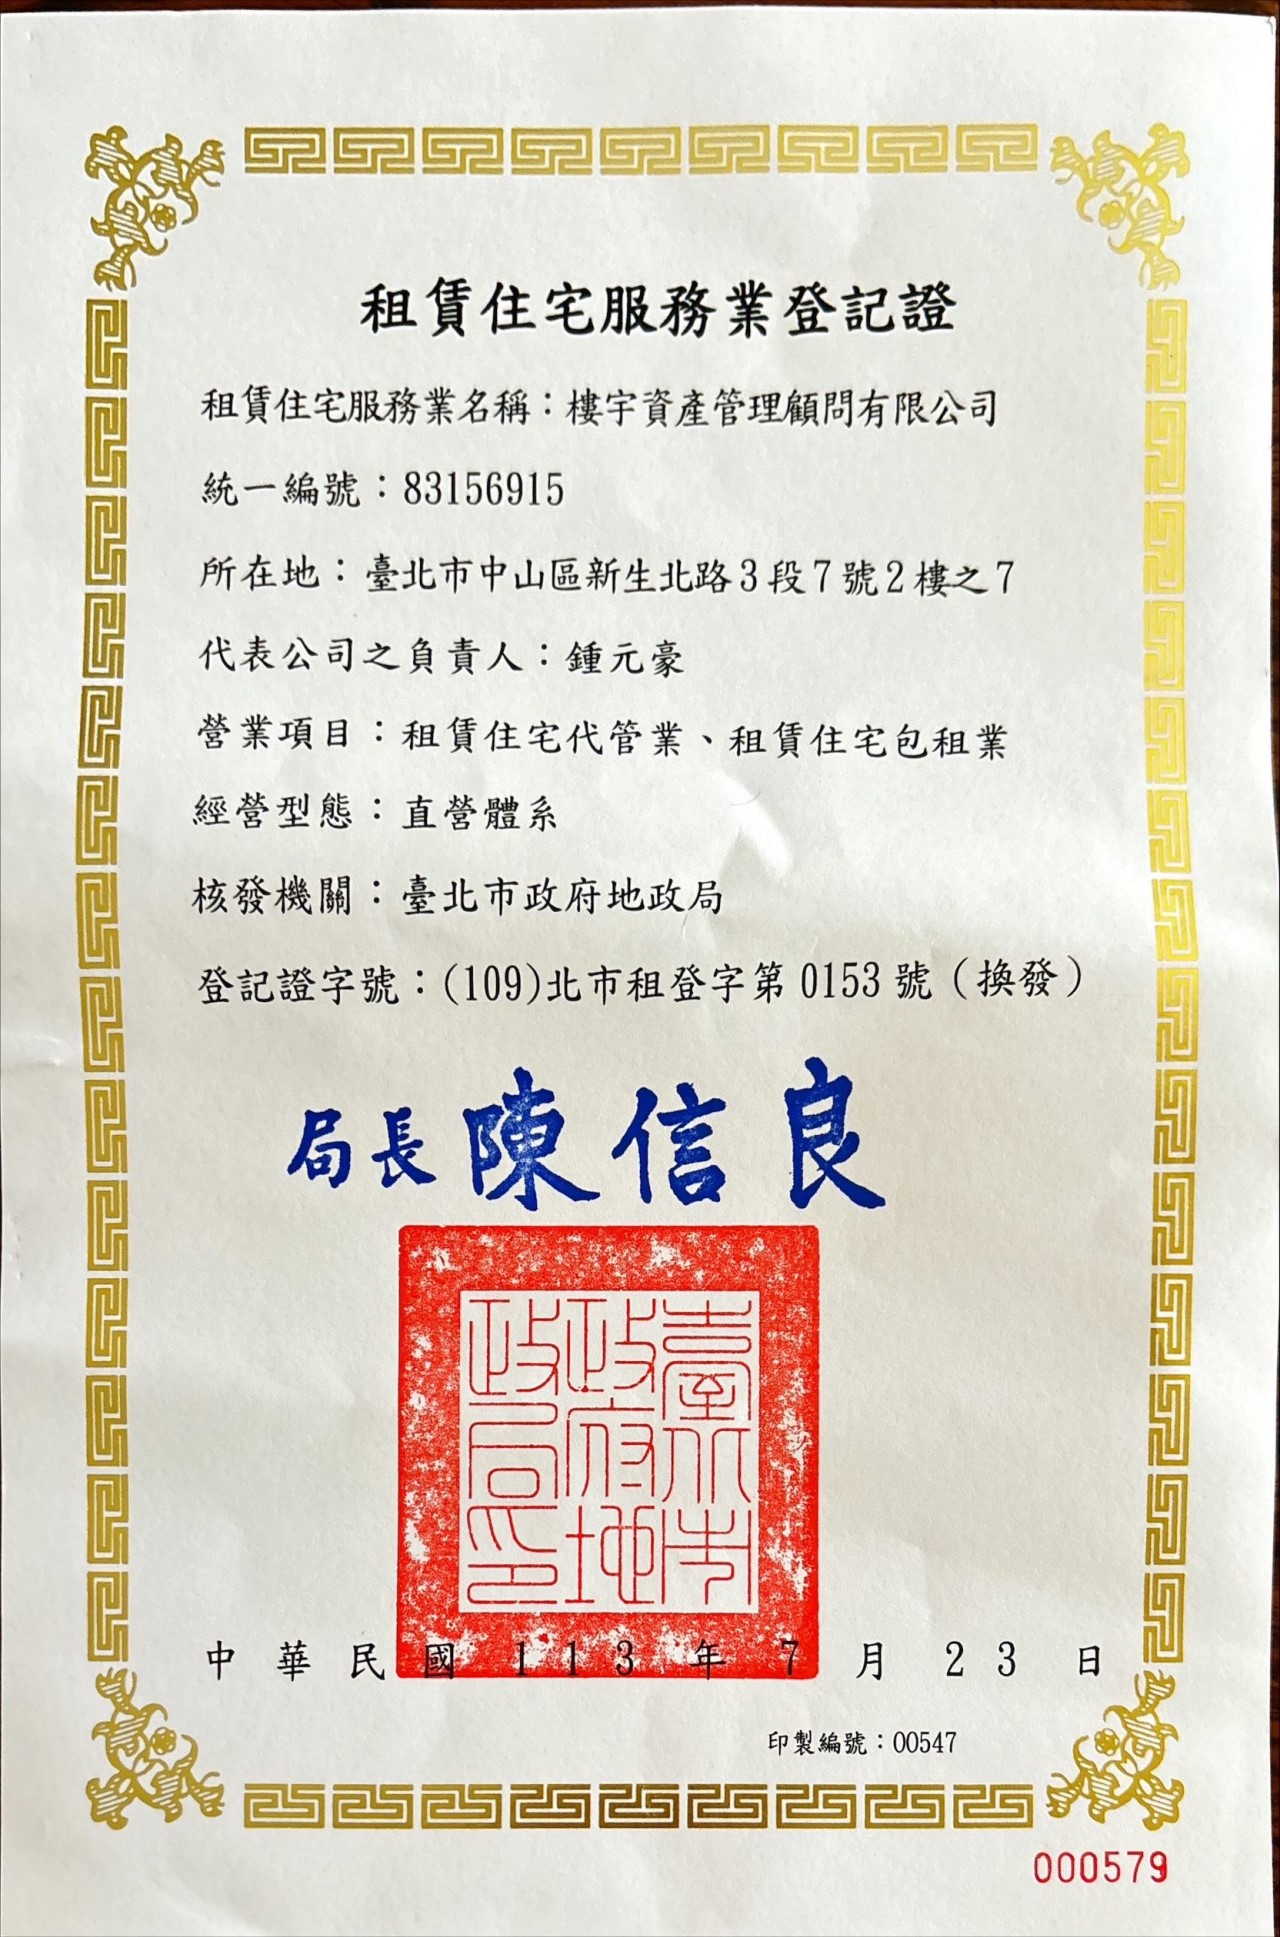 租賃住宅服務業登記證
租賃住宅服務業名稱：樓宇資產管理顧問有限公司
統一編號：83156915
所在地：臺北市中山區新生北路3段7號2樓之7
代表公司之負責人：鍾元豪
營業項目：租賃住宅代管業、租賃住宅包租業
經營型態：直營體系
核發機關：臺北市政府地政局
登記證字號：(109)北市租登字第0153號（換發）
局長 陳信良
臺北市
政府地
政局印
中華民國113年7月23日
印製編號：00547
000579